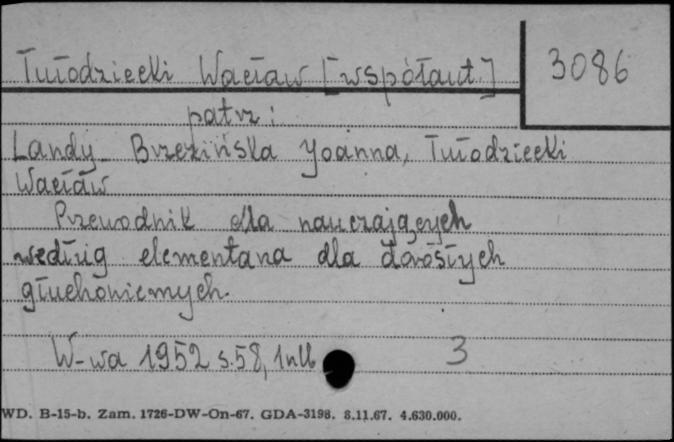 Tułodziecki Wacław [współaut.]
3086
patrz:
Landy-Brzezińska Joanna, Tułodziecki
Wacław
Przewodnik dla nauczających
według elementarza dla dorosłych
głuchoniemych.
W-wa 1952 s.58, 1nlb
3
WD. B-15-b. Zam. 1726-DW-On-67. GDA-3198. 8.11.67. 4.630.000.